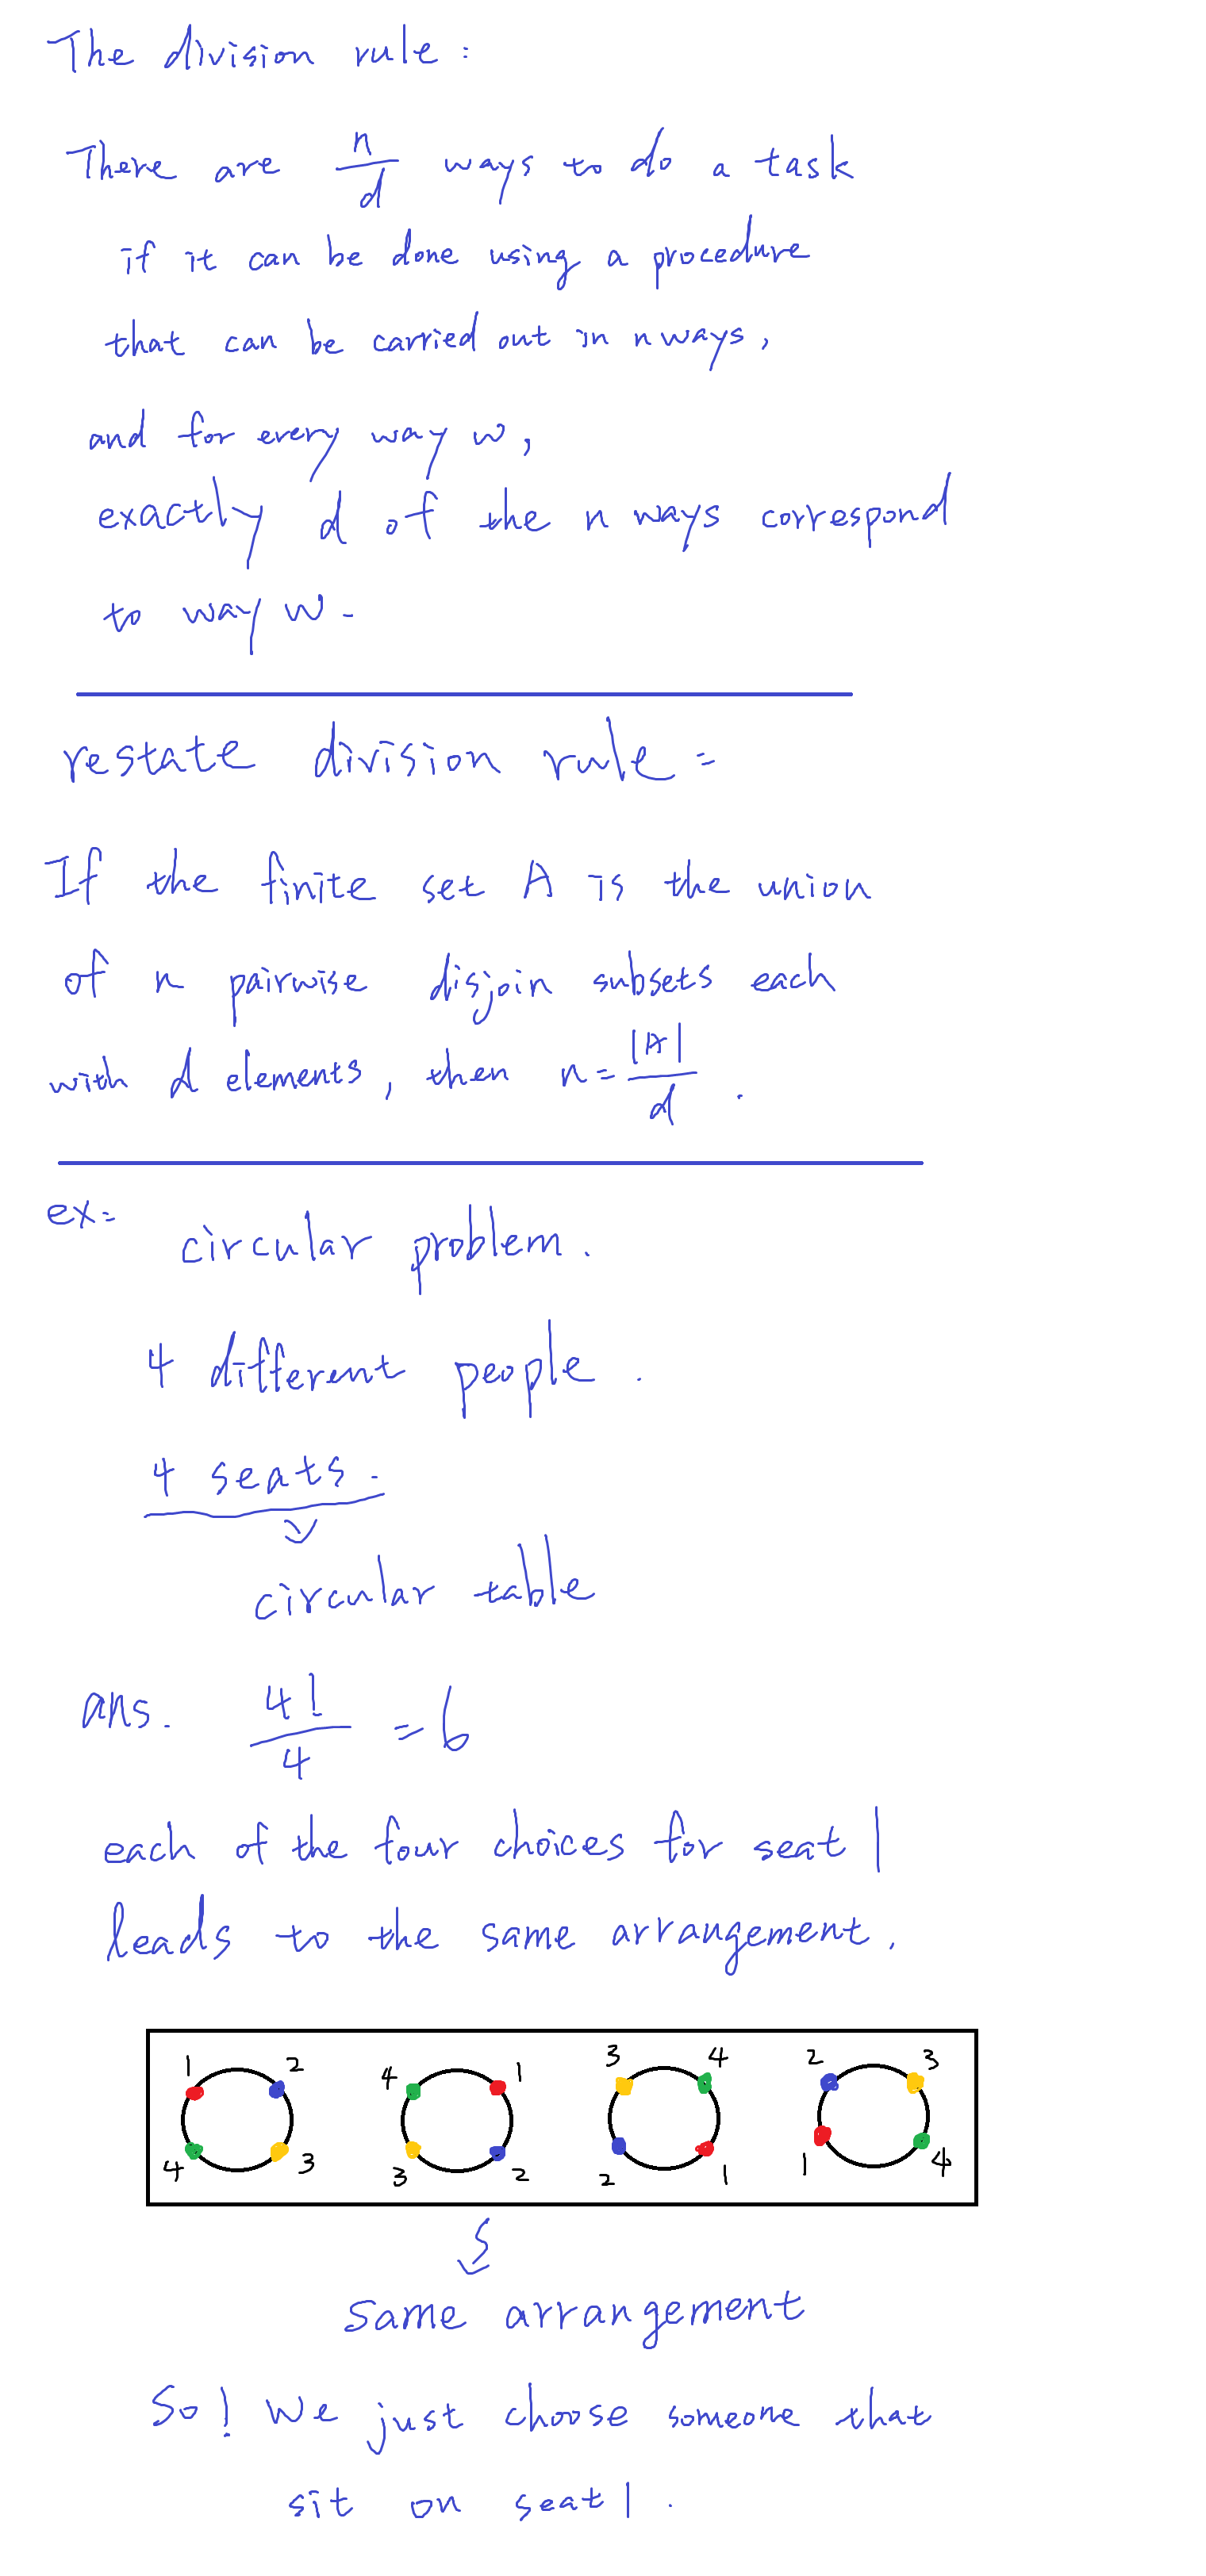 The division rule:
There are n/d ways to do a task
if it can be done using a procedure
that can be carried out in n ways,
and for every way w,
exactly d of the n ways correspond
to way w.
restate division rule:
If the finite set A is the union
of n pairwise disjoin subsets each
with d elements, then n=|A|/d.
ex:
circular problem.
4 different people.
4 seats.
circular table
ans. 4!/4 = 6
each of the four choices for seat 1
leads to the same arrangement.
1 2 4 1 3 4 2 3
4 3 3 2 2 1 1 4
same arrangement
So! We just choose someone that
sit on seat 1.